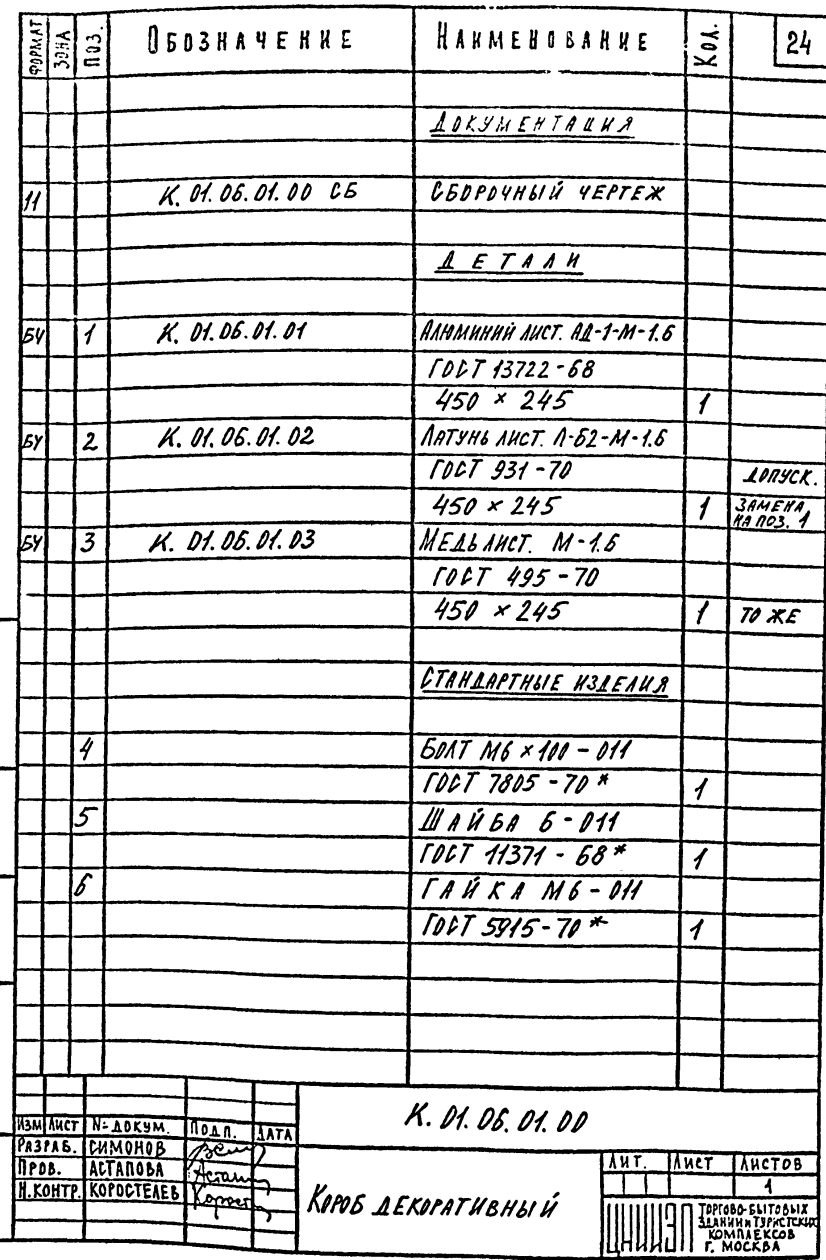 ФОРМАТ ЗОНА ПОЗ. ОБОЗНАЧЕНИЕ НАИМЕНОВАНИЕ КОЛ. 24
ДОКУМЕНТАЦИЯ
11 К. 01.06.01.00 СБ СБОРОЧНЫЙ ЧЕРТЕЖ
ДЕТАЛИ
БЧ 1 К. 01.06.01.01 АЛЮМИНИЙ ЛИСТ. АД-1-М-1.6
ГОСТ 13722-68
450 × 245 1
БЧ 2 К. 01.06.01.02 ЛАТУНЬ ЛИСТ. Л-62-М-1.6
ГОСТ 931-70 ДОПУСК.
450 × 245 1 ЗАМЕНА
НА ПОЗ. 1
БЧ 3 К. 01.06.01.03 МЕДЬ ЛИСТ. М-1.6
ГОСТ 495-70
450 × 245 1 ТО ЖЕ
СТАНДАРТНЫЕ ИЗДЕЛИЯ
4 БОЛТ М6 × 100 - 011
ГОСТ 7805-70* 1
5 ШАЙБА 6-011
ГОСТ 11371-68* 1
6 ГАЙКА М6-011
ГОСТ 5915-70* 1
К. 01.06.01.00
ИЗМ ЛИСТ №ДОКУМ. ПОДП. ДАТА
РАЗРАБ. СИМОНОВ
ПРОВ. АСТАПОВА
Н.КОНТР. КОРОСТЕЛЕВ
КОРОБ ДЕКОРАТИВНЫЙ
ЛИТ. ЛИСТ ЛИСТОВ
1
ЦНИИЭП ТОРГОВО-БЫТОВЫХ
ЗДАНИЙ И ТУРИСТСКИХ
КОМПЛЕКСОВ
Г. МОСКВА